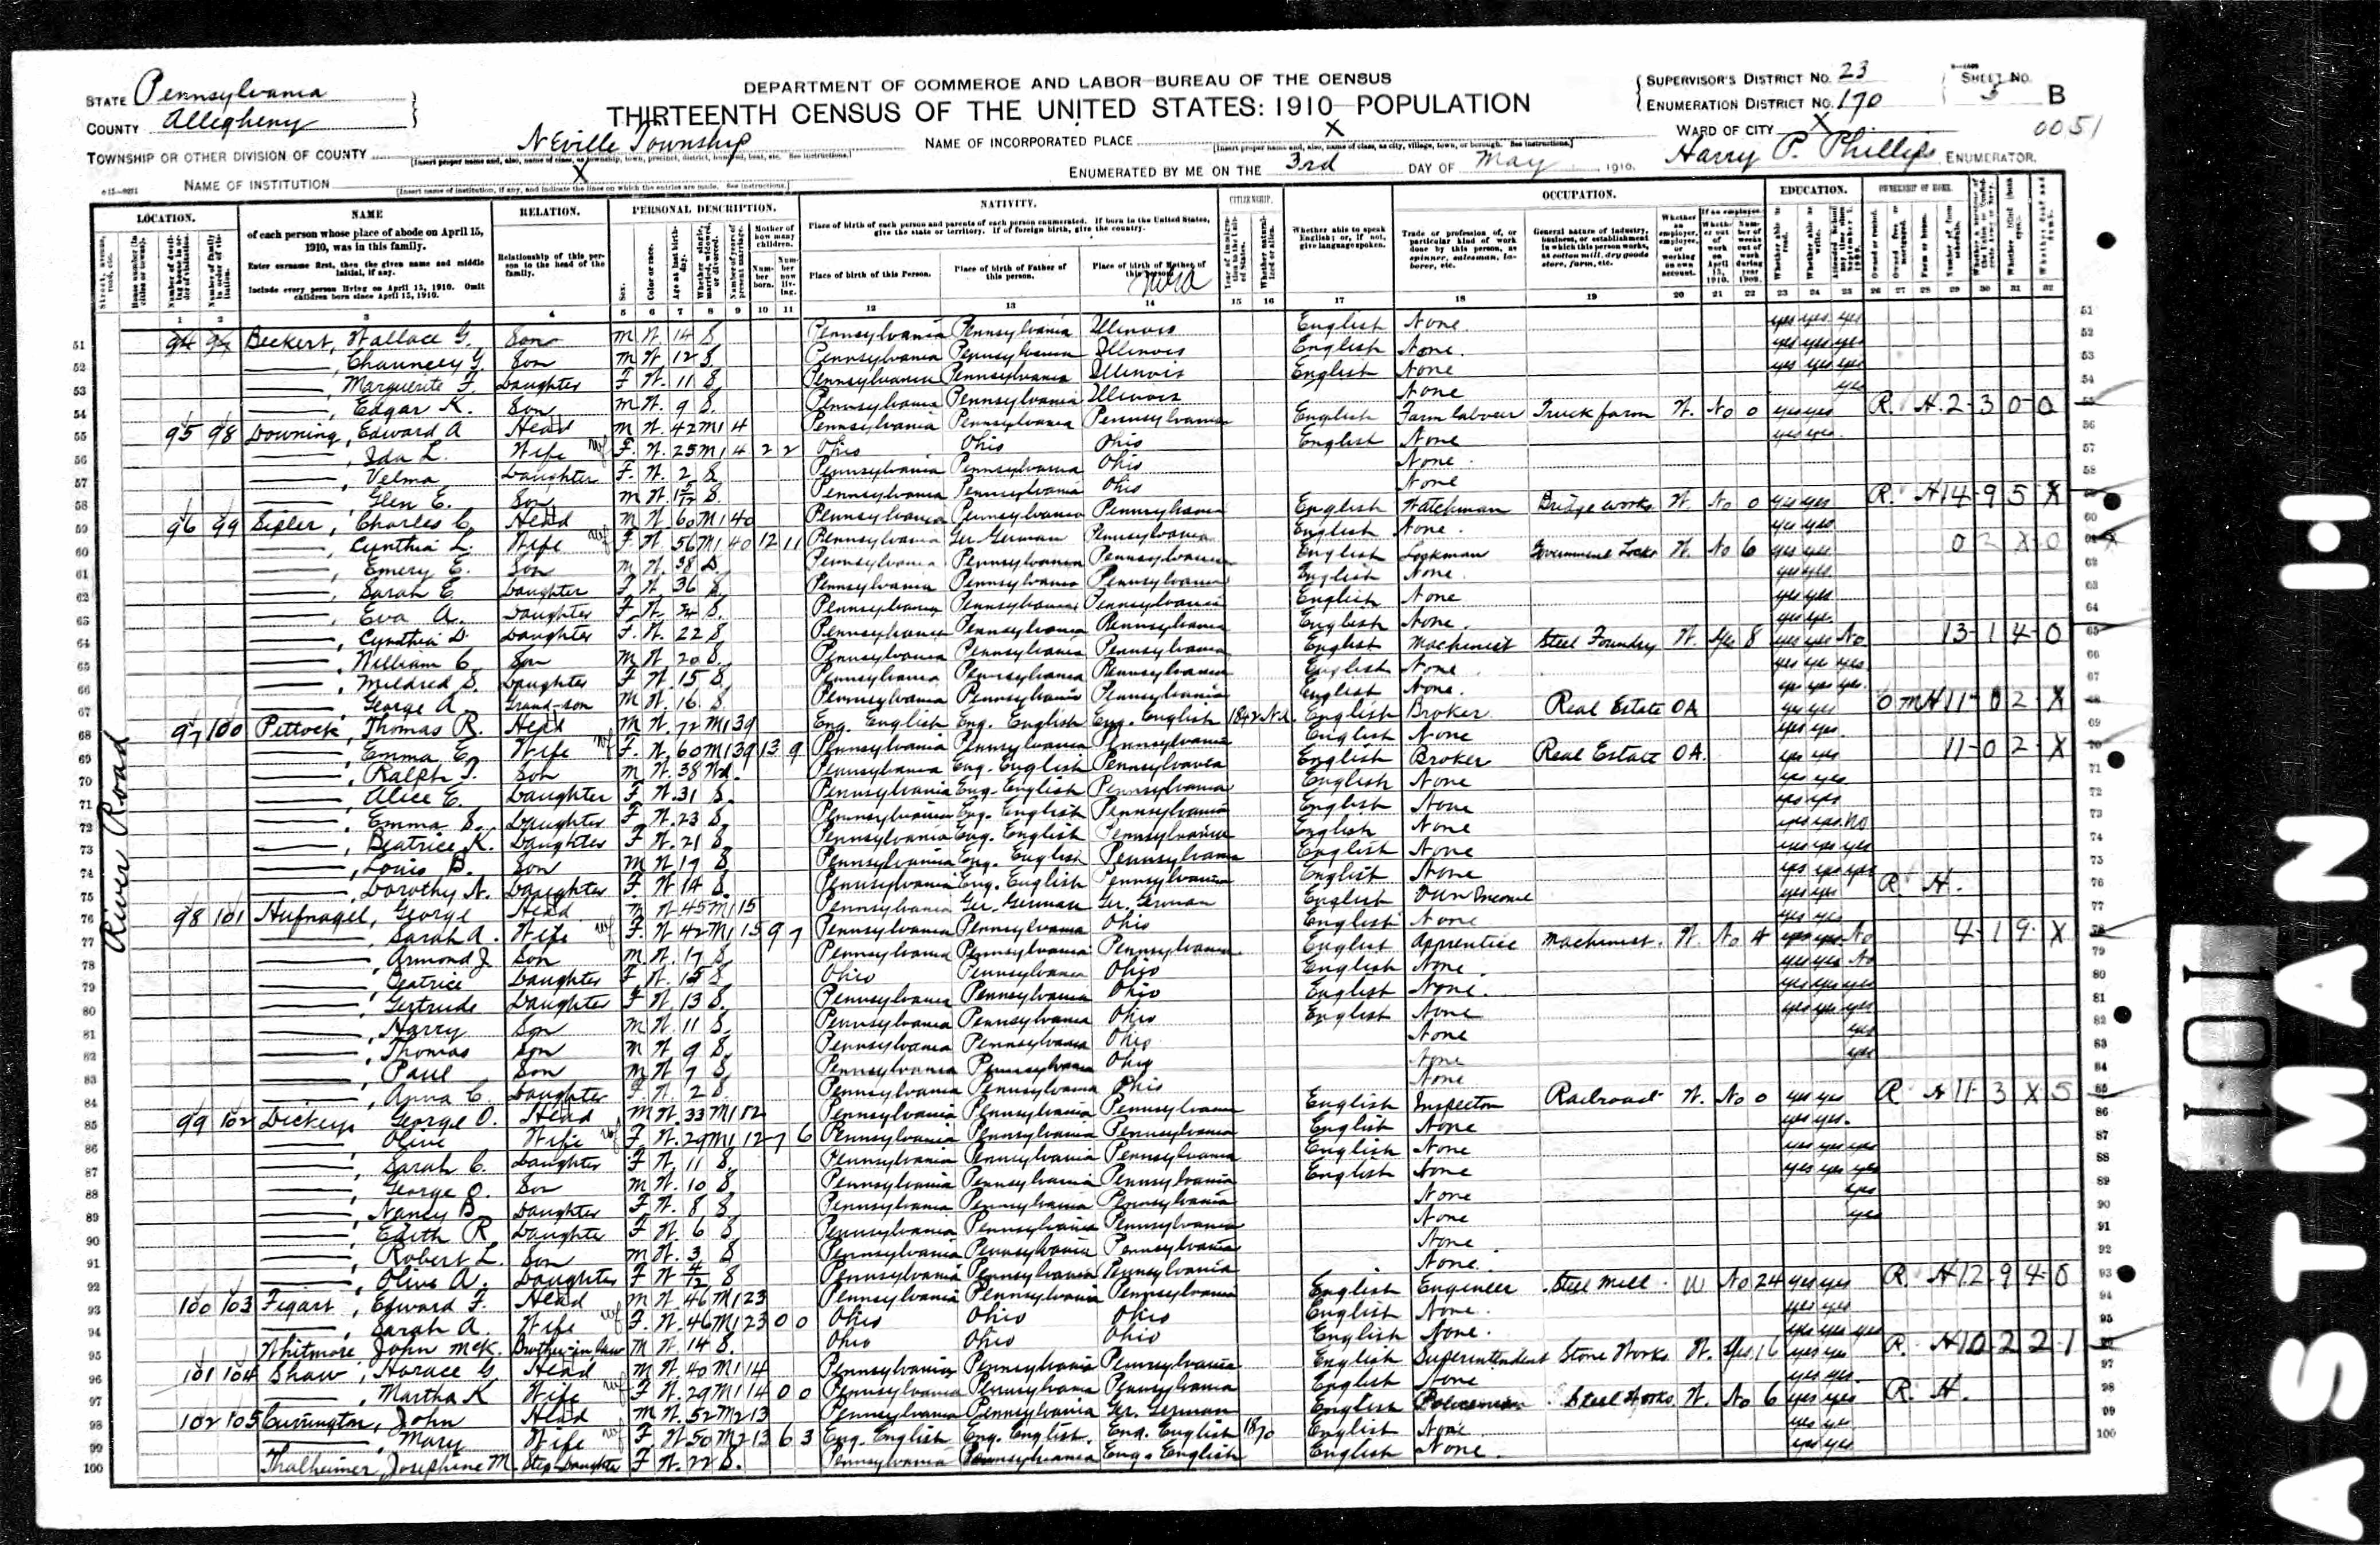 DEPARTMENT OF COMMERCE AND LABOR—BUREAU OF THE CENSUS
THIRTEENTH CENSUS OF THE UNITED STATES: 1910—POPULATION
STATE Pennsylvania
COUNTY Allegheny
TOWNSHIP OR OTHER DIVISION OF COUNTY Neville Township
NAME OF INSTITUTION X
NAME OF INCORPORATED PLACE X
ENUMERATED BY ME ON THE 3rd DAY OF May, 1910.
SUPERVISOR'S DISTRICT NO. 23
ENUMERATION DISTRICT NO. 170
SHEET NO. 5 B
0051
WARD OF CITY X
Harry P. Phillips, ENUMERATOR.
LOCATION. NAME RELATION. PERSONAL DESCRIPTION. NATIVITY. CITIZENSHIP. OCCUPATION. EDUCATION. OWNERSHIP OF HOME.
of each person whose place of abode on April 15, 1910, was in this family.
Enter surname first, then the given name and middle initial, if any.
Include every person living on April 15, 1910. Omit children born since April 15, 1910.
Relationship of this person to the head of the family.
Place of birth of each person and parents of each person enumerated. If born in the United States, give the state or territory. If of foreign birth, give the country.
Place of birth of this Person. Place of birth of Father of this person. Place of birth of Mother of this person.
Whether able to speak English; or, if not, give language spoken.
Trade or profession of, or particular kind of work done by this person, as spinner, salesman, laborer, etc.
General nature of industry, business, or establishment in which this person works, as cotton mill, dry goods store, farm, etc.
River Road
51 94 97 Beckert, Wallace G. Son M W. 14 S Pennsylvania Pennsylvania Illinois English None yes yes yes
52 , Chauncey G. Son M W. 12 S Pennsylvania Pennsylvania Illinois English None. yes yes yes
53 , Marguerite F. Daughter F W. 11 S Pennsylvania Pennsylvania Illinois English None yes yes yes
54 , Edgar K. Son M W. 9 S. Pennsylvania Pennsylvania Illinois None yes
55 95 98 Downing, Edward A Head M W. 42 M1 4 Pennsylvania Pennsylvania Pennsylvania English Farm labourer Truck farm W. No 0 yes yes R. H. 2-3 0-0
56 , Ida L. Wife F. W. 25 M1 4 2 2 Ohio Ohio Ohio English None yes yes
57 , Velma Daughter F. W. 2 S Pennsylvania Pennsylvania Ohio None
58 , Glen E. Son M W. S Pennsylvania Pennsylvania Ohio None
59 96 99 Sipler, Charles C. Head M W 60 M1 40 Pennsylvania Pennsylvania Pennsylvania English Watchman Bridge works W. No 0 yes yes R. H 14-9 5 X
60 , Cynthia L. Wife F W. 56 M1 40 12 11 Pennsylvania Ger. German Pennsylvania English None. yes yes
61 , Emery E. Son M W. 38 D. Pennsylvania Pennsylvania Pennsylvania English Lockman Government Locks W. No 6 yes yes 0 2 X 0
62 , Sarah E Daughter F W 36 S. Pennsylvania Pennsylvania Pennsylvania English None yes yes
63 , Eva A. Daughter F W. S. Pennsylvania Pennsylvania Pennsylvania English None yes yes
64 , Cynthia D. Daughter F. W. 22 S Pennsylvania Pennsylvania Pennsylvania English None. yes yes
65 , William C. Son M W 20 S. Pennsylvania Pennsylvania Pennsylvania English Machinist Steel Foundry W. Yes 8 yes yes No 13-1 4-0
66 , Mildred S. Daughter F W. 15 S Pennsylvania Pennsylvania Pennsylvania English None yes yes yes
67 , George A. Grand-son M W. 16. S Pennsylvania Pennsylvania Pennsylvania English None. yes yes yes
68 97 100 Pettock, Thomas R. Head M W. 72 M1 39 Eng. English Eng. English Eng. English 1842 Na. English Broker Real Estate OA yes yes O M H 11-0 2 X
69 , Emma E. Wife F. W. 60 M1 39 13 9 Pennsylvania Pennsylvania Pennsylvania English None yes yes
70 , Ralph T. Son M W. 38 Wd. Pennsylvania Eng. English Pennsylvania English Broker Real Estate OA. yes yes 11-0 2 X
71 , Alice E. Daughter F W. 31 S. Pennsylvania Eng. English Pennsylvania English None yes yes
72 , Emma S. Daughter F W. 23 S Pennsylvania Eng. English Pennsylvania English None yes yes
73 , Beatrice K. Daughter F W. 21 S Pennsylvania Eng. English Pennsylvania English None yes yes No
74 , Louis B. Son M W 17 S Pennsylvania Eng. English Pennsylvania English None yes yes yes
75 , Dorothy N. Daughter F. W 14 S. Pennsylvania Eng. English Pennsylvania English None yes yes yes
76 98 101 Hufnagel, George Head M W 45 M1 15 Pennsylvania Ger. German Ger. German English Own Income yes yes R H.
77 , Sarah A. Wife F. W 42 M1 15 9 7 Pennsylvania Pennsylvania Ohio English None yes yes
78 , Armond J. Son M W. 17 S Pennsylvania Pennsylvania Pennsylvania English Apprentice Machinist. W. No 4 yes yes No 4-1 9 X
79 , Beatrice Daughter F W. 15 S Ohio Pennsylvania Ohio English None. yes yes No
80 , Gertrude Daughter F W. 13 S Pennsylvania Pennsylvania Ohio English None. yes yes yes
81 , Harry Son M W. 11 S. Pennsylvania Pennsylvania Ohio English None yes yes yes
82 , Thomas Son M W. 9 S Pennsylvania Pennsylvania Ohio None yes
83 , Paul Son M W 7 S Pennsylvania Pennsylvania Ohio None yes
84 , Anna C. Daughter F W. 2 S. Pennsylvania Pennsylvania Ohio None
85 99 102 Dickey, George O. Head M W. 33 M1 12 Pennsylvania Pennsylvania Pennsylvania English Inspector Railroad W. No 0 yes yes R H 11-3 X 5
86 , Olive Wife F. W. 29 M1 12 7 6 Pennsylvania Pennsylvania Pennsylvania English None yes yes.
87 , Sarah C. Daughter F W. 11 S Pennsylvania Pennsylvania Pennsylvania English None yes yes yes
88 , George O. Son M W. 10 S Pennsylvania Pennsylvania Pennsylvania English None yes yes yes
89 , Nancy B. Daughter F W. 8 S Pennsylvania Pennsylvania Pennsylvania None yes
90 , Edith R Daughter F W. 6 S Pennsylvania Pennsylvania Pennsylvania None yes
91 , Robert L. Son M W. 3 S Pennsylvania Pennsylvania Pennsylvania None
92 , Olive A. Daughter F W 4/12 S Pennsylvania Pennsylvania Pennsylvania None.
93 100 103 Figart, Edward F. Head M W. 46 M1 23 Pennsylvania Pennsylvania Pennsylvania English Engineer Steel Mill W No 24 yes yes R. H 12-9 4-0
94 , Sarah A. Wife F. W. 46 M1 23 0 0 Ohio Ohio Ohio English None. yes yes
95 Whitmore John McK. Brother-in-law M W 14 S. Ohio Ohio Ohio English None. yes yes yes
96 101 104 Shaw, Horace G Head M W 40 M1 14 Pennsylvania Pennsylvania Pennsylvania English Superintendent Stone Works W. Yes 16 yes yes R. H 10-2 2-1
97 , Martha K Wife F W. 29 M1 14 0 0 Pennsylvania Pennsylvania Pennsylvania English None yes yes.
98 102 105 Currington, John Head M W. 52 M2 13 Pennsylvania Pennsylvania Ger. German English Policeman Steel Works W. No 6 yes yes R. H.
99 , Mary Wife F W 50 M2 13 6 3 Eng. English Eng. English Eng. English 1870 English None yes yes
100 Thalheimer, Josephine M. Step-Daughter F W. 22 S. Pennsylvania Pennsylvania Eng. English English None. yes yes
EASTMAN
101